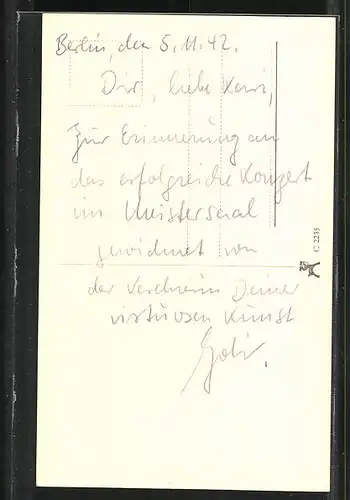 Berlin, den 5.11.42.
Dir, liebe
zur Erinnerung an
das erfolgreiche Konzert
im Meistersaal
gewidmet von
der Verehrerin Deiner
virtuosen Kunst
C 2235